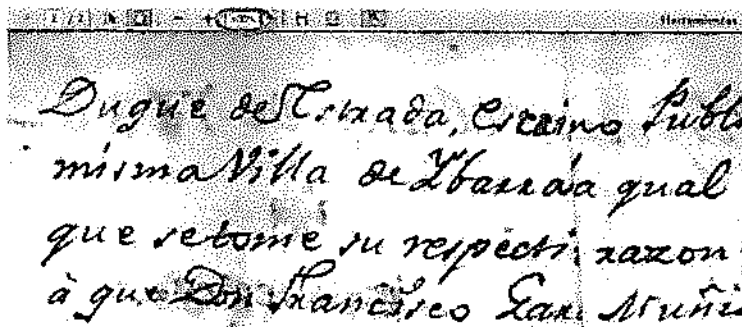 1 / 1 Herramientas
Duque de Estrada, Escrino Publ
misma Villa de Ybarra a qual
que se tome su respecti razon
à que Don Francisco Muñi